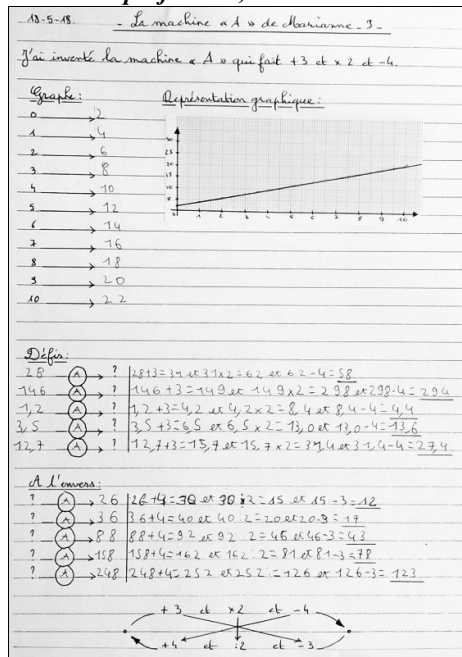 18-5-18. - La machine « A » de Marianne - 3 -
J'ai inventé la machine « A » qui fait +3 et x 2 et -4.
Graphe:
Représentation graphique:
0 → 2
1 → 4
2 → 6
3 → 8
4 → 10
5 → 12
6 → 14
7 → 16
8 → 18
9 → 20
10 → 22
30
25
20
15
10
5
0 1 2 3 4 5 6 7 8 9 10
Défis:
28 (A) → ? | 28+3=31 et 31x2=62 et 62-4=58
146 (A) → ? | 146+3=149 et 149x2=298 et 298-4=294
1,2 (A) → ? | 1,2+3=4,2 et 4,2x2=8,4 et 8,4-4=4,4
3,5 (A) → ? | 3,5+3=6,5 et 6,5x2=13,0 et 13,0-4=13,6
12,7 (A) → ? | 12,7+3=15,7 et 15,7x2=31,4 et 31,4-4=27,4
A l'envers:
? (A) → 26 | 26+4=30 et 30:2=15 et 15-3=12
? (A) → 36 | 36+4=40 et 40:2=20 et 20-3=17
? (A) → 88 | 88+4=92 et 92:2=46 et 46-3=43
? (A) → 158 | 158+4=162 et 162:2=81 et 81-3=78
? (A) → 248 | 248+4=252 et 252:=126 et 126-3=123
+3 et x2 et -4
+4 et :2 et -3